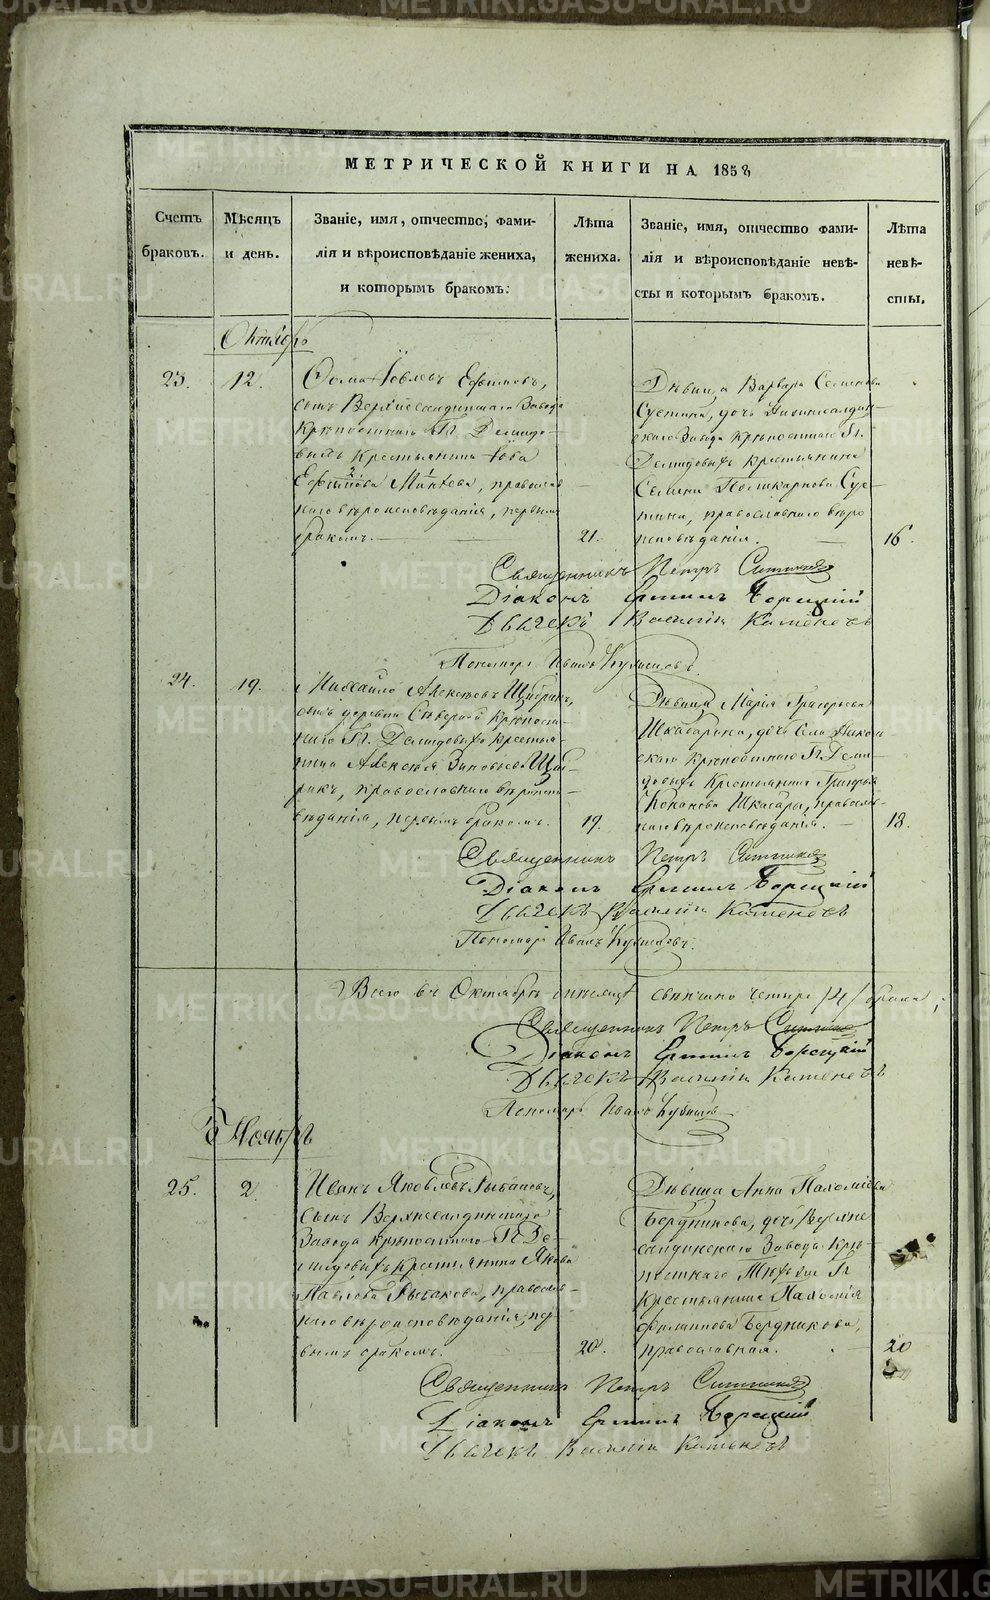 МЕТРИЧЕСКОЙ КНИГИ НА 1858
Счетъ браковъ.
Мѣсяцъ и день.
Званіе, имя, отчество, фами-
лія и вѣроисповѣданіе жениха,
и которымъ бракомъ:
Лѣта жениха.
Званіе, имя, отчество фами-
лія и вѣроисповѣданіе невѣ-
сты и которымъ бракомъ.
Лѣта невѣ-
сты.
Октябрь
23.
12.
Ѳома Іовлевъ Ефимовъ,
сынъ Верхнесалдинскаго Завода
Крѣпостнаго Гг. Демидо-
выхъ крестьянина Іова
Ефимова, православ
наго вѣроисповѣданія, первымъ
бракомъ.
21.
Дѣвица Варвара Семенова
Сустина, дочь Нижнесалдин-
скаго Завода крѣпостнаго Гг.
Демидовыхъ крестьянина
Семена Поликарпова Сус-
тина, православнаго вѣро
исповѣданія.
16.
Священникъ Петръ
Діаконъ
Дьячекъ Василій
Пономарь Иванъ Кузнецовъ.
24.
19.
Михаило Алексѣевъ
сынъ деревни Сѣверной крѣпост-
наго Гг. Демидовыхъ крестья-
нина Алексѣя Зиновьева
православнаго вѣроиспо-
вѣданія, первымъ бракомъ.
19.
Дѣвица Марія Григорьева
дочь Села Никол
скаго крѣпостнаго Гг. Деми-
довыхъ Крестьянина Григорья
православ-
наго вѣроисповѣданія.
18.
Священникъ Петръ
Діаконъ
Дьячекъ Василій
Пономарь Иванъ Кузнецовъ.
Всего въ Октябрѣ мѣсяцѣ свѣнчано четыре /4/ брака.
Священникъ Петръ
Діаконъ
Дьячекъ Василій
Пономарь Иванъ
Ноябрь
25.
2.
Иванъ Яковлевъ Рыбаковъ,
сынъ Верхнесалдинскаго
Завода крѣпостнаго Гг. Де-
мидовыхъ крестьянина Якова
Павлова Рыбакова, православ-
наго вѣроисповѣданія, пер
вымъ бракомъ.
20.
Дѣвица Анна Пахомиева
Бердникова, дочь Верхне
салдинскаго Завода Крѣ-
постнаго Тѣхъ же Гг.
Крестьянина Пахомія
Филиппова Бердникова,
православная.
20
Священникъ Петръ
Діаконъ
Дьячекъ Василій
METRIKI.GASO-URAL.RU